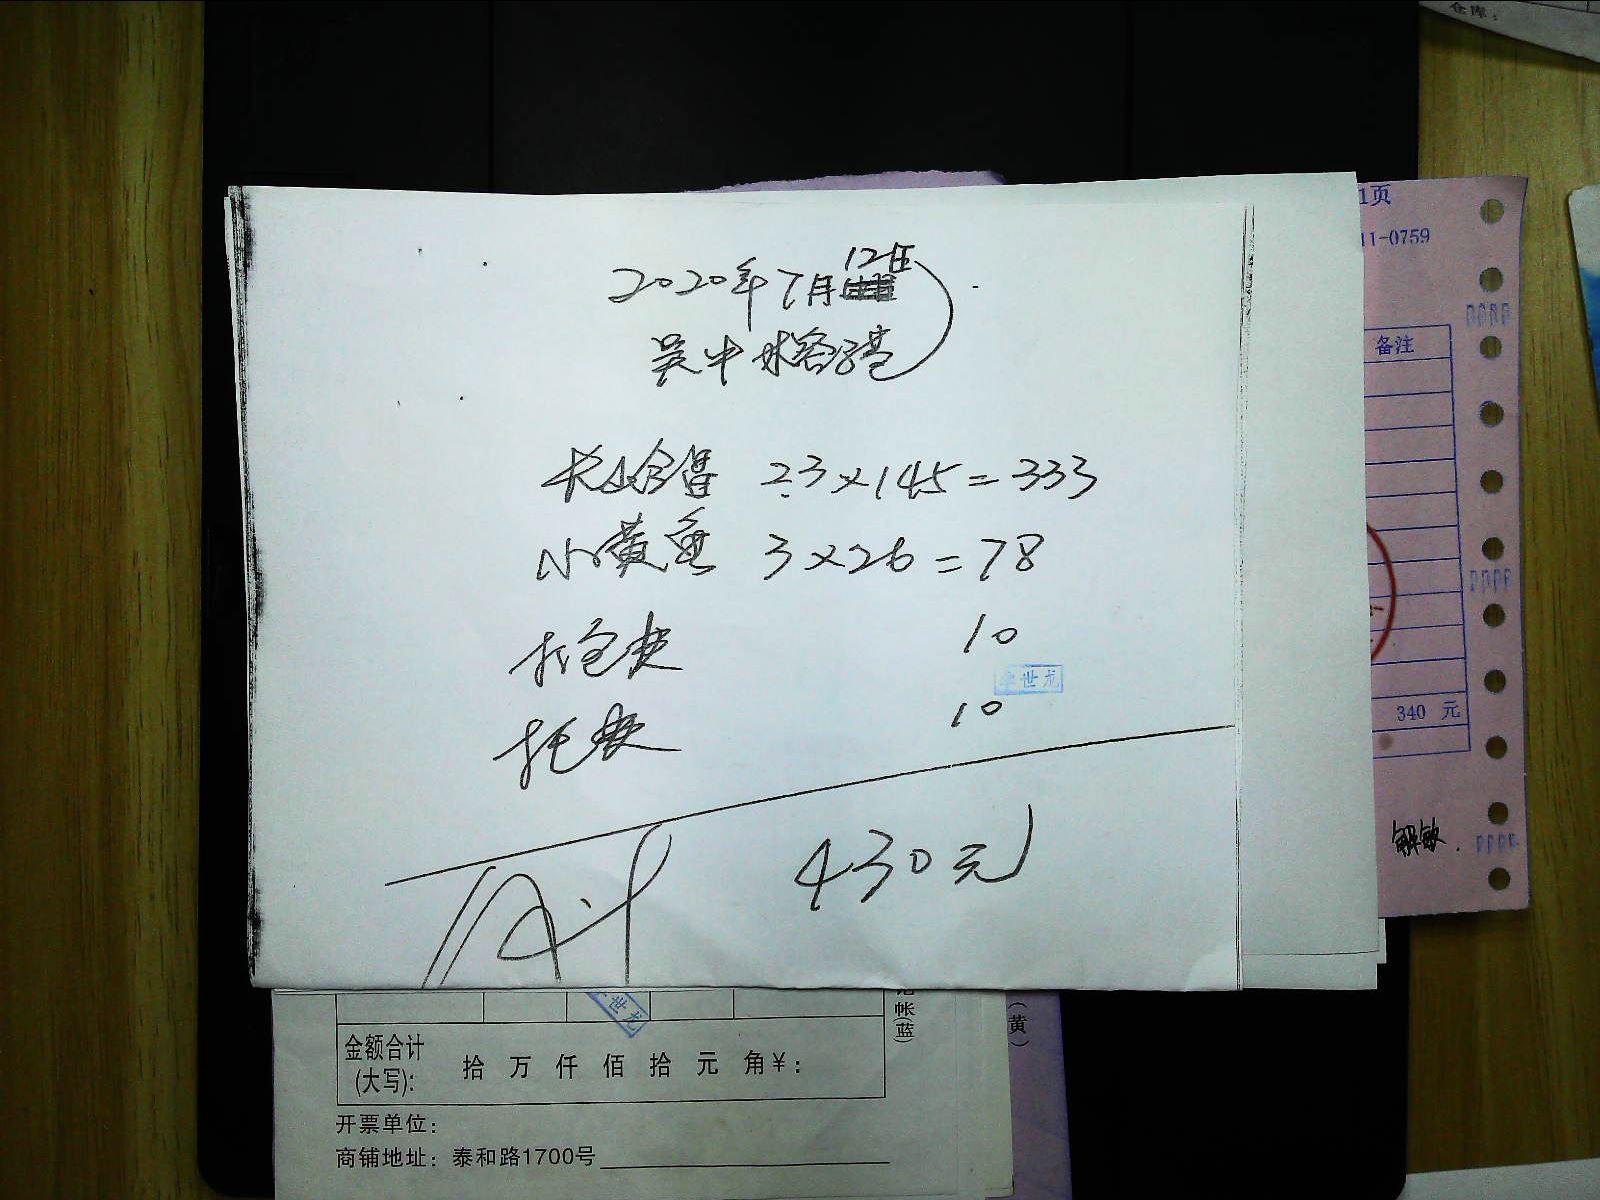 仓库：
1页
11-0759
备注
2020年7月12日
吴中
2.3×145=333
小黄鱼 3×26=78
打包费 10
李世龙
托费 10
340 元
430元
记帐(蓝)
(黄)
金额合计
(大写)： 拾 万 仟 佰 拾 元 角￥：
开票单位：
商铺地址：泰和路1700号